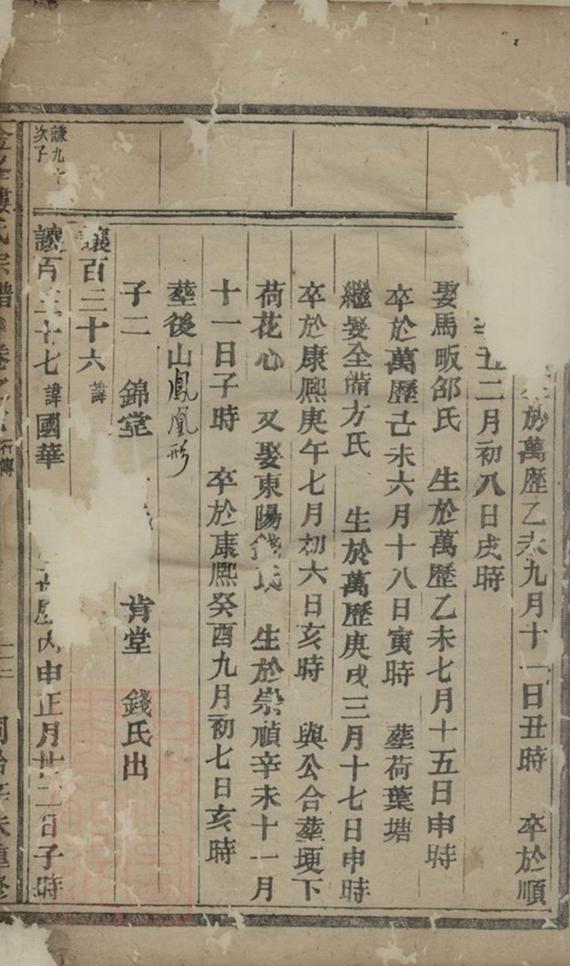 於萬歷乙未九月十一日丑時　卒於順
丑二月初八日戌時
娶馬畈邵氏　生於萬歷乙未七月十五日申時
卒於萬歷己未六月十八日寅時　塟荷葉塘
繼娶全備方氏　生於萬歷庚戌三月十七日申時
卒於康熙庚午七月初六日亥時　與公合塟埂下
荷花心　又娶東陽錢氏　生於崇禎辛未十一月
十一日子時　卒於康熙癸酉九月初七日亥時
塟後山鳳凰形
子二　錦堂　肯堂　錢氏出
讓百三十六諱
謙九十
次子
讓百三十七諱國華　丙申正月廿二日子時
樓氏宗譜　卷　行傳　同治辛未重修